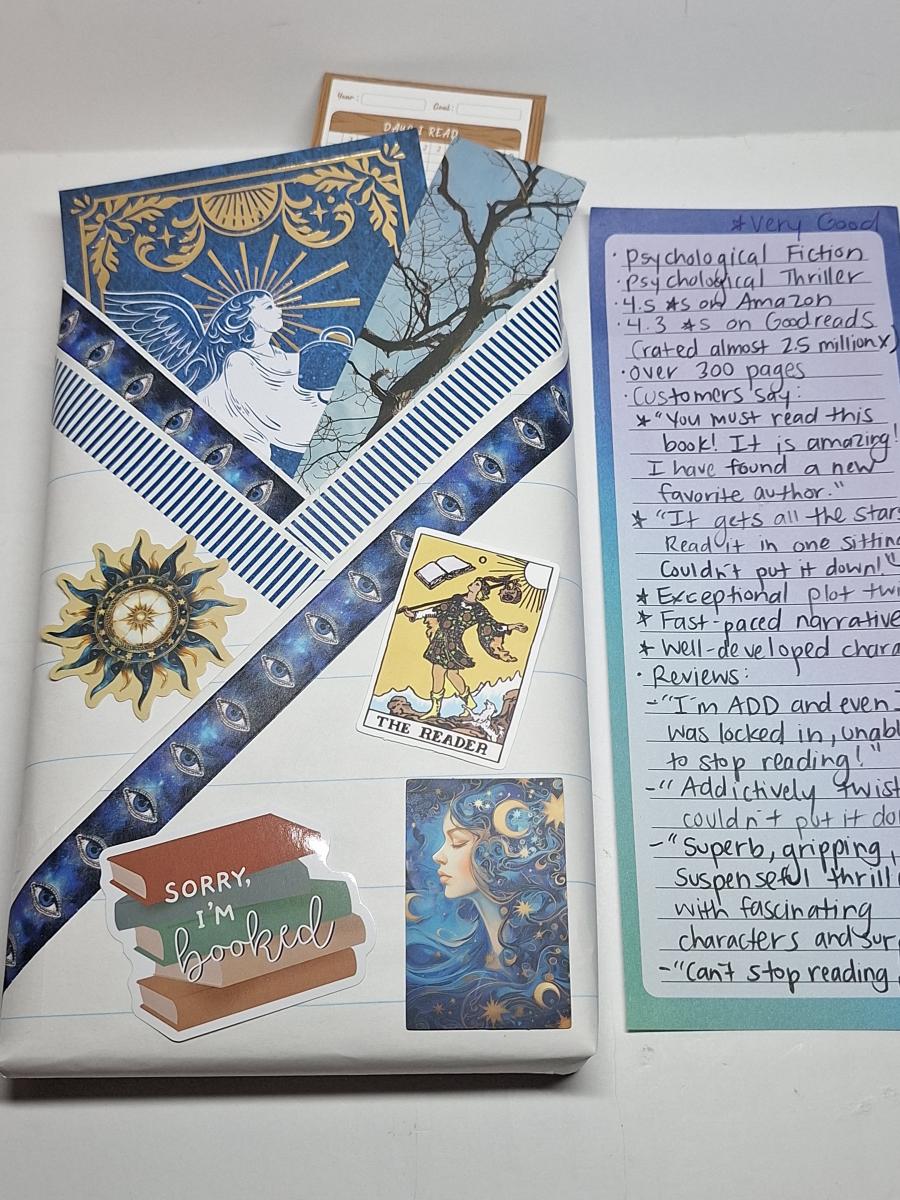 Year: Goal:
DAYS I READ
*Very Good
· Psychological Fiction
· Psychological Thriller
· 4.5 *s on Amazon
· 4.3 *s on Goodreads
(rated almost 2.5 million x)
· Over 300 pages
· Customers say:
* "You must read this
book! It is amazing!
I have found a new
favorite author."
* "It gets all the stars
Read it in one sittin
Couldn't put it down!"
* Exceptional plot twi
* Fast-paced narrative
* Well-developed chara
· Reviews:
- "I'm ADD and even I
was locked in, unab
to stop reading!"
- "Addictively twist
couldn't put it do
- "Superb, gripping,
Suspenseful thrill
with fascinating
characters and sur
- "Can't stop reading
THE READER
SORRY,
I'M
booked